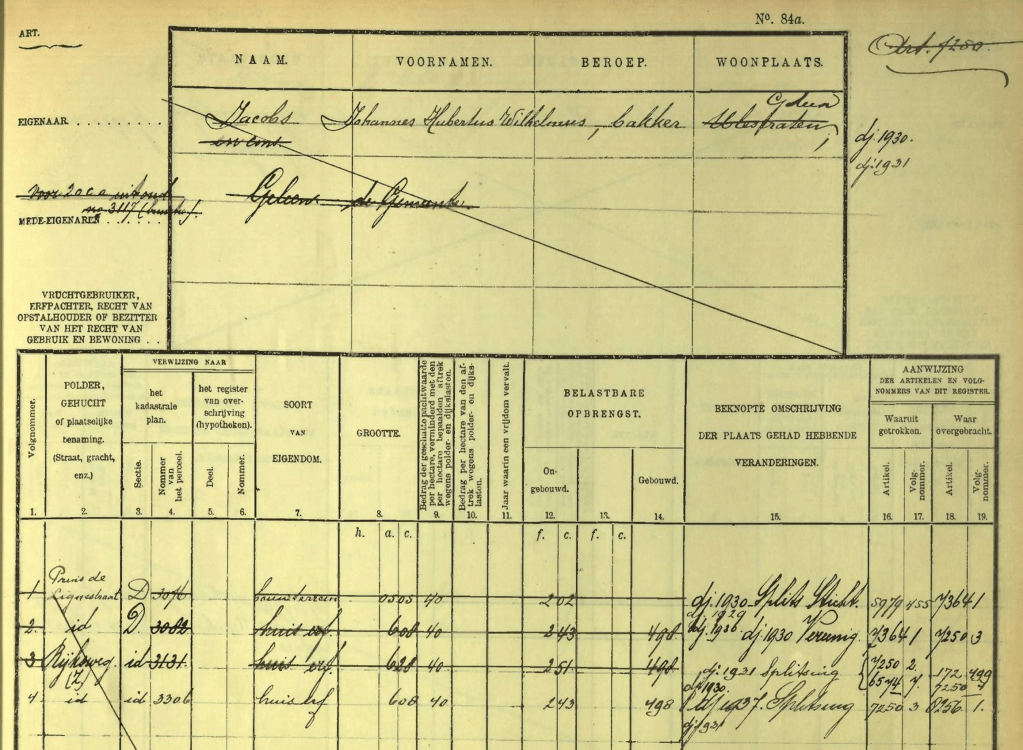 No. 84a.
ART.
Art. 7250.
NAAM. VOORNAMEN. BEROEP. WOONPLAATS.
Geleen
EIGENAAR . . . . . . . . . . Jacobs Johannes Hubertus Wilhelmus, bakker Ulestraten,
en cons
dj. 1930.
dj. 1931
Geleen de Gemeente.
no 3117
MEDE-EIGENAREN . . . . . .
VRUCHTGEBRUIKER,
ERFPACHTER, RECHT VAN
OPSTALHOUDER OF BEZITTER
VAN HET RECHT VAN
GEBRUIK EN BEWONING . .
Volgnommer.
1.
POLDER,
GEHUCHT
of plaatselijke
benaming.
(Straat, gracht,
enz.)
2.
VERWIJZING NAAR
het
kadastrale
plan.
Sectie.
3.
Nommer
van
het perceel.
4.
het register
van over-
schrijving
(hypotheken).
Deel.
5.
Nommer.
6.
SOORT
VAN
EIGENDOM.
7.
GROOTTE.
8.
Bedrag der geschatte pachtwaarde
per hectare, verminderd met den
per hectare bepaalden aftrek
wegens polder- en dijkslasten.
9.
Bedrag per hectare van den af-
trek wegens polder- en dijks-
lasten.
10.
Jaar waarin een vrijdom vervalt.
11.
BELASTBARE
OPBRENGST.
On-
gebouwd.
12.
13.
Gebouwd.
14.
BEKNOPTE OMSCHRIJVING
DER PLAATS GEHAD HEBBENDE
VERANDERINGEN.
15.
AANWIJZING
DER ARTIKELEN EN VOLG-
NOMMERS VAN DIT REGISTER.
Waaruit
getrokken.
Artikel.
16.
Volg-
nommer.
17.
Waar
overgebracht.
Artikel.
18.
Volg-
nommer.
19.
h. a. c. f. c. f. c.
Prins de
1 Lignestraat D 3076 bouwterrein 05 05 40 2 02 dj. 1930 Splits Sticht. 5979 455 7364 1
dj. 1929
2. id D. 3082 huis erf 6 08 40 2 43 498 dj 1930 Verenig 7364 1 7250 3
3 Rijksweg id 3131 huis erf 6 28 40 2 51 498 dj. 1931 Splitsing 7250 2. 172 499
(Z) dj 1930. 6574 7. 7250 4
4 id id 3306 huis erf 6 08 40 2 43 498 Splitsing 7250 3 8256 1.
dj 1931